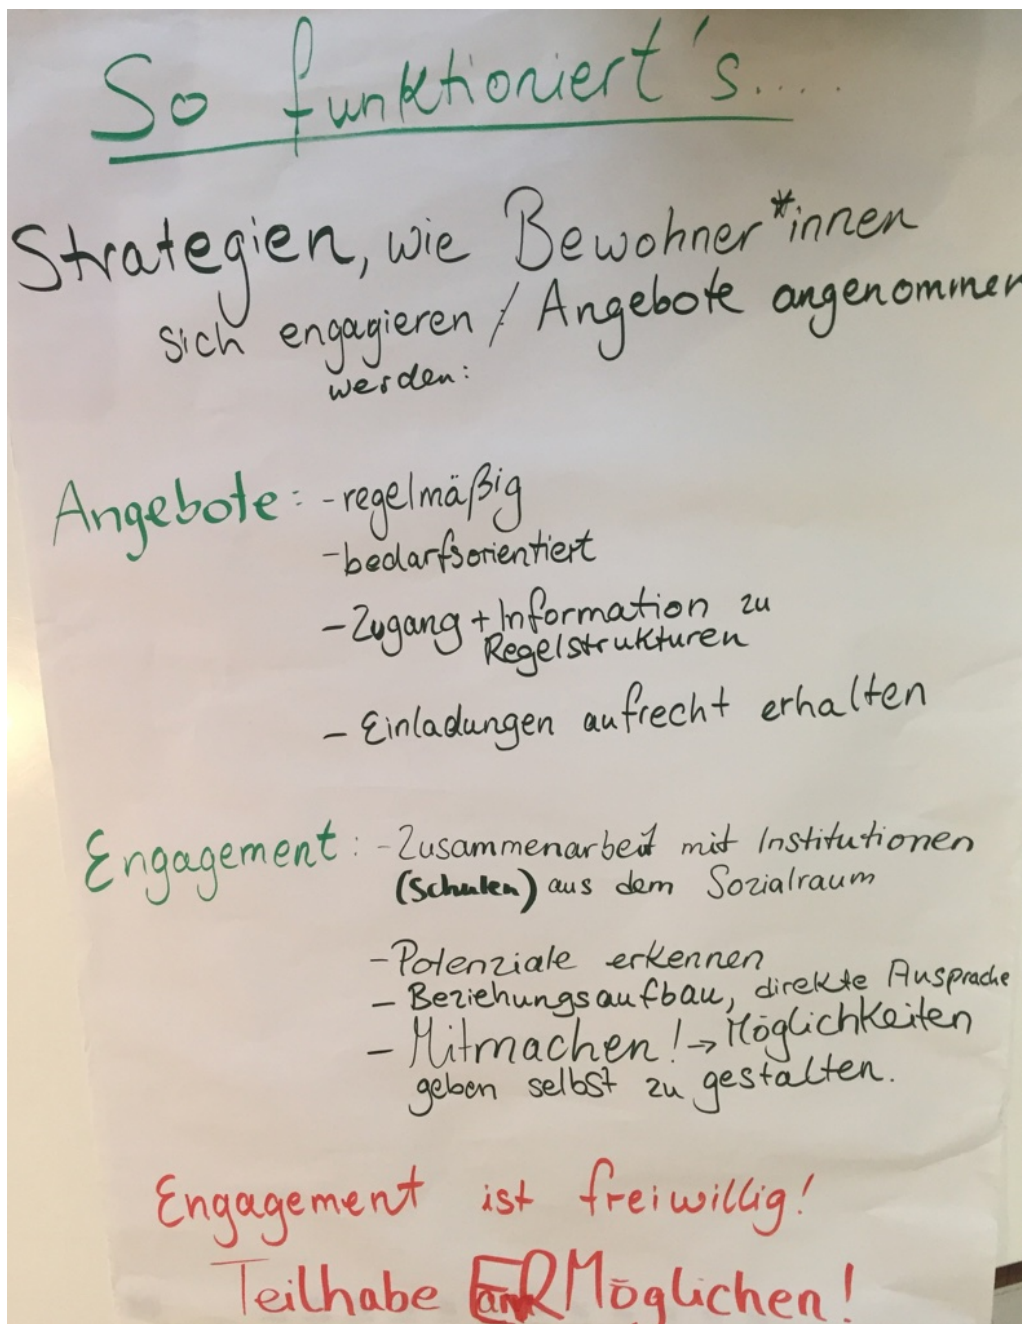 So funktioniert's....
Strategien, wie Bewohner*innen
sich engagieren / Angebote angenommen
werden:
Angebote: - regelmäßig
- bedarfsorientiert
- Zugang + Information zu
Regelstrukturen
- Einladungen aufrecht erhalten
Engagement: - Zusammenarbeit mit Institutionen
(Schulen) aus dem Sozialraum
- Potenziale erkennen
- Beziehungsaufbau, direkte Ansprache
- Mitmachen! → Möglichkeiten
geben selbst zu gestalten.
Engagement ist freiwillig!
Teilhabe ERMöglichen!